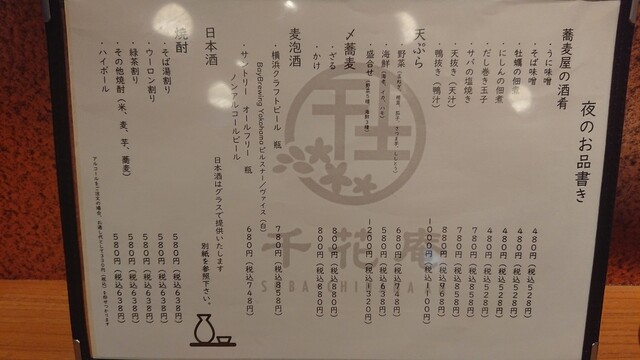 夜のお品書き
蕎麦屋の酒肴
・うに味噌 480円（税込528円）
・そば味噌 480円（税込528円）
・牡蠣の佃煮 480円（税込528円）
・にしんの佃煮 480円（税込528円）
・だし巻き玉子 780円（税込858円）
・サバの塩焼き 780円（税込858円）
・天抜き（天汁） 880円（税込968円）
・鴨抜き（鴨汁） 1000円（税込1100円）
天ぷら
・野菜 680円（税込748円）
・海鮮 580円（税込638円）
・盛合せ 1200円（税込1320円）
〆蕎麦
・ざる 800円（税込880円）
・かけ 800円（税込880円）
麦泡酒
・横浜クラフトビール 瓶 780円（税込858円）
BayBrewing Yokohama ピルスナー／ヴァイス（白）
・サントリー オールフリー 瓶 680円（税込748円）
ノンアルコールビール
日本酒
日本酒はグラスで提供いたします
別紙を参照下さい。
焼酎
・そば湯割り 580円（税込638円）
・ウーロン割り 580円（税込638円）
・緑茶割り 580円（税込638円）
・その他焼酎（米、麦、芋、蕎麦） 580円（税込638円）
・ハイボール 580円（税込638円）
千花庵